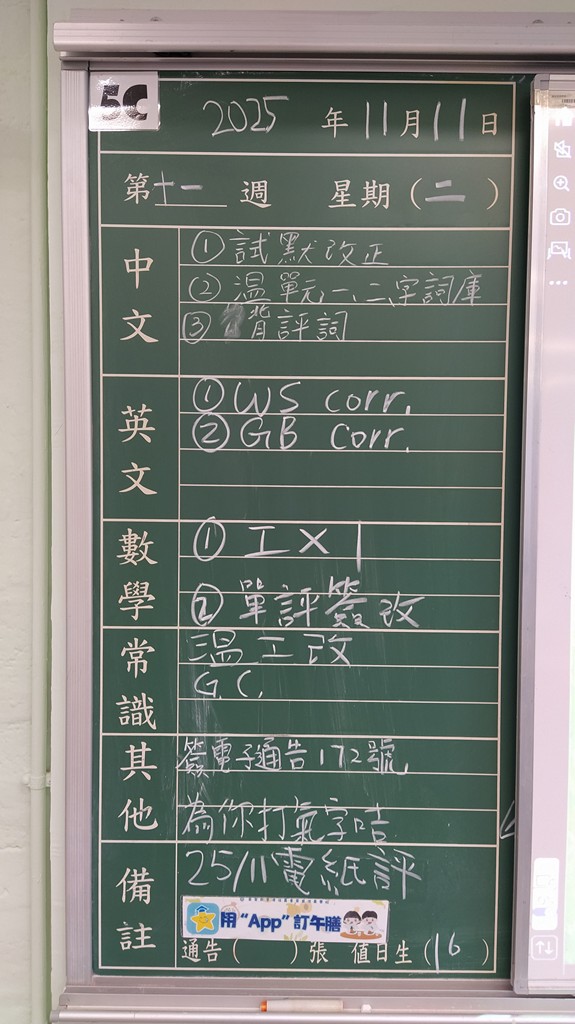 5C
2025 年 11 月 11 日
第 十一 週 星期 ( 二 )
中文
① 試默改正
② 溫單元一、二字詞庫
③ 背評詞
英文
① WS corr.
② GB corr.
數學
① 工 × 1
② 單評簽改
常識
溫工改
G.C.
其他
簽電子通告172號
為你打氣字咭
備註
25/11 電紙評
用 “App” 訂午膳
通告 ( ) 張 值日生 ( 16 )